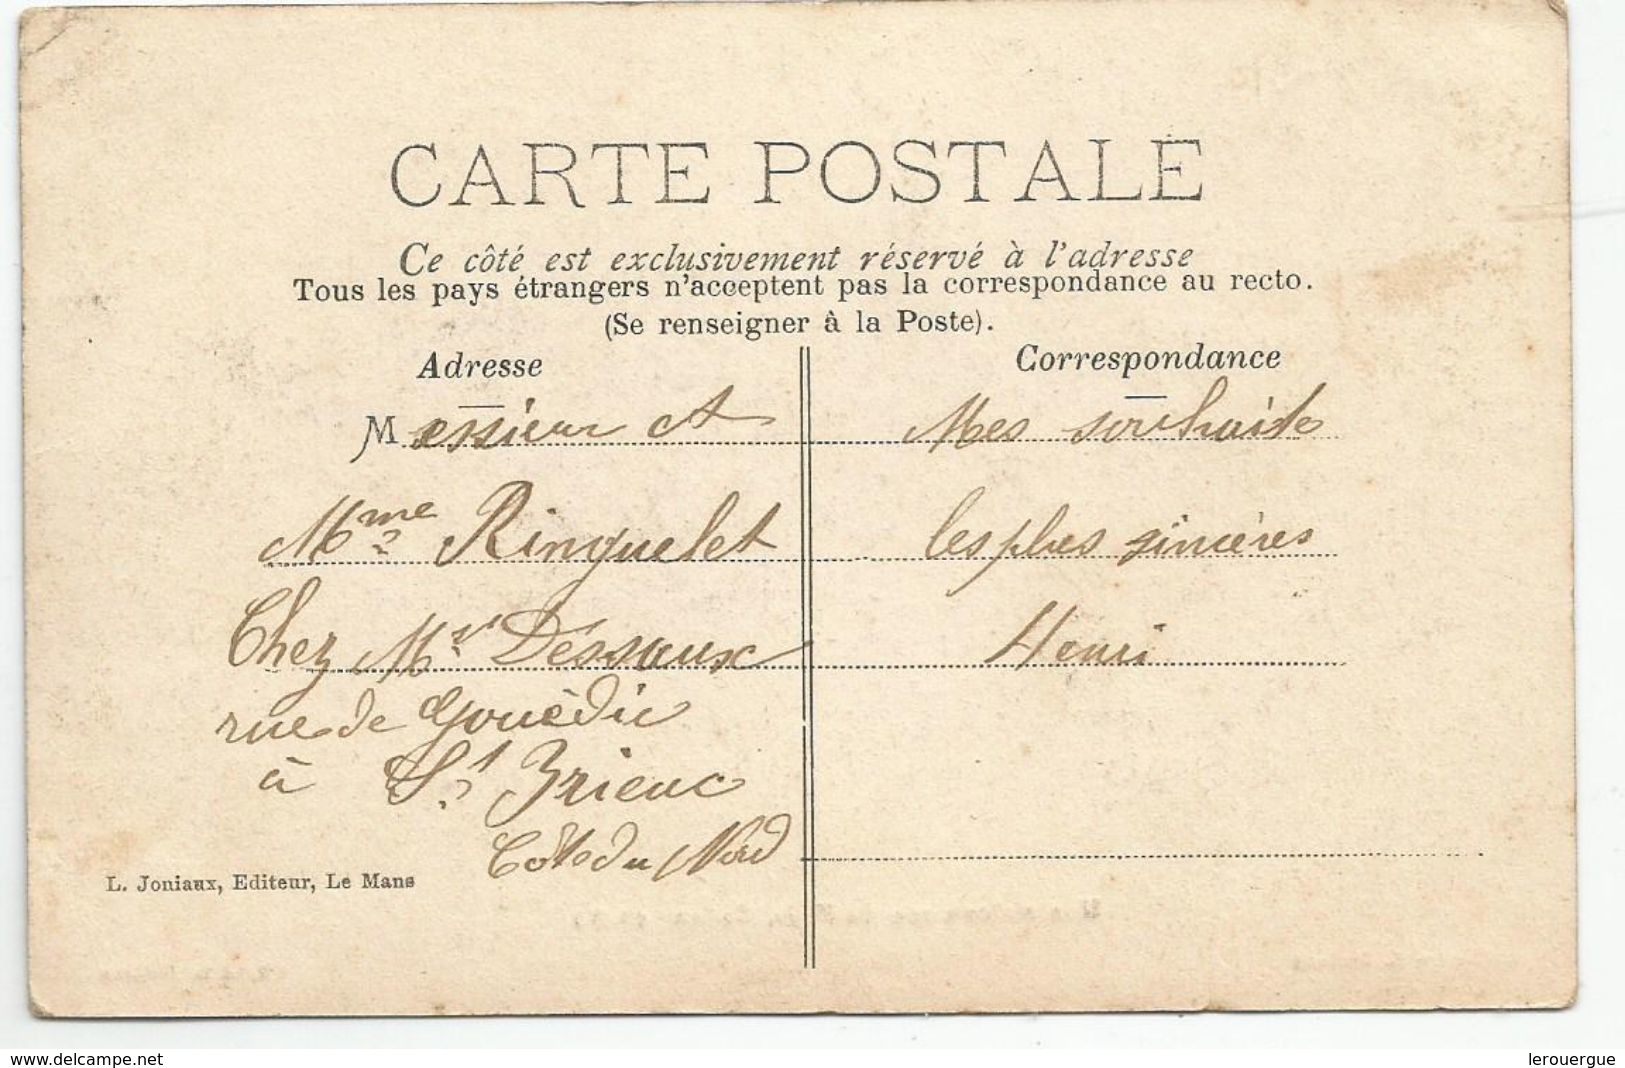 CARTE POSTALE
Ce côté est exclusivement réservé à l'adresse
Tous les pays étrangers n'acceptent pas la correspondance au recto.
(Se renseigner à la Poste).
Adresse
Messieur et
Mme Ringuelet
Chez Mr Déssaux
rue de Gouèdic
à St Brieuc
Côte du Nord
L. Joniaux, Editeur, Le Mans
Correspondance
Mes souhaite
les plus sincères
Henri
www.delcampe.net
lerouergue